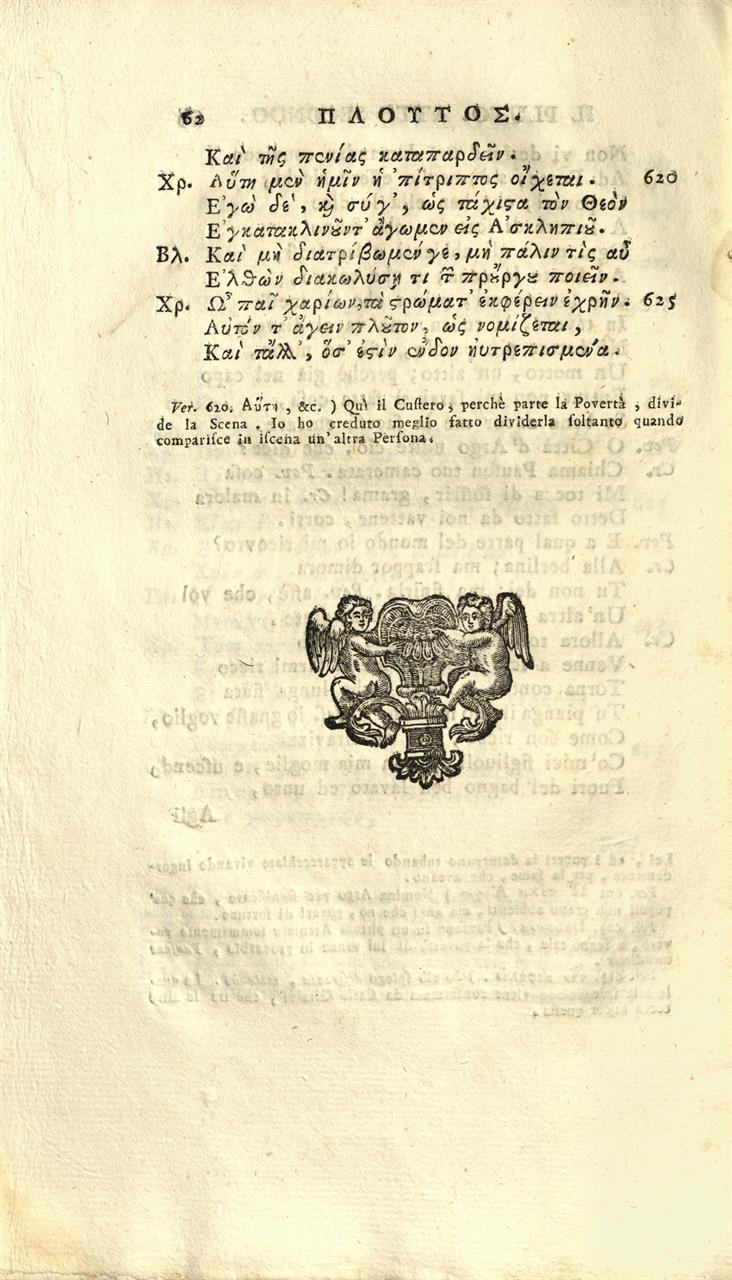 62 ΠΛΟΥΤΟΣ.
Καὶ τῆς πενίας καταπαρδεῖν.
Χρ. Αὕτη μὲν ἡμῖν ἡ ᾿πίτριπτος οἴχεται. 620
Ε᾿γὼ δὲ, καὶ σύ γ᾿, ὡς τάχιςα τὸν Θεὸν
Ε᾿γκατακλινοῦντ᾿ ἄγωμεν εἰς Α᾿σκληπιοῦ.
Βλ. Καὶ μὴ διατρίβωμέν γε, μὴ πάλιν τὶς αὖ
Ε᾿λθὼν διακωλύσῃ τι τῶν προὔργου ποιεῖν.
Χρ. Ω῏ παῖ χαρίων, τὰ ςρώματ᾿ ἐκφέρειν ἐχρῆν. 625
Αὐτόν τ᾿ ἄγειν πλοῦτον, ὡς νομίζεται,
Καὶ τἄλλ᾿, ὅσ᾿ ἐςὶν ἔνδον ηὐτρεπισμένα.
Ver. 620. Αὕτη, &c. ) Quì il Cuſtero, perchè parte la Povertà, divi-
de la Scena. Io ho creduto meglio fatto dividerla ſoltanto quando
compariſce in iſcena un' altra Perſona.